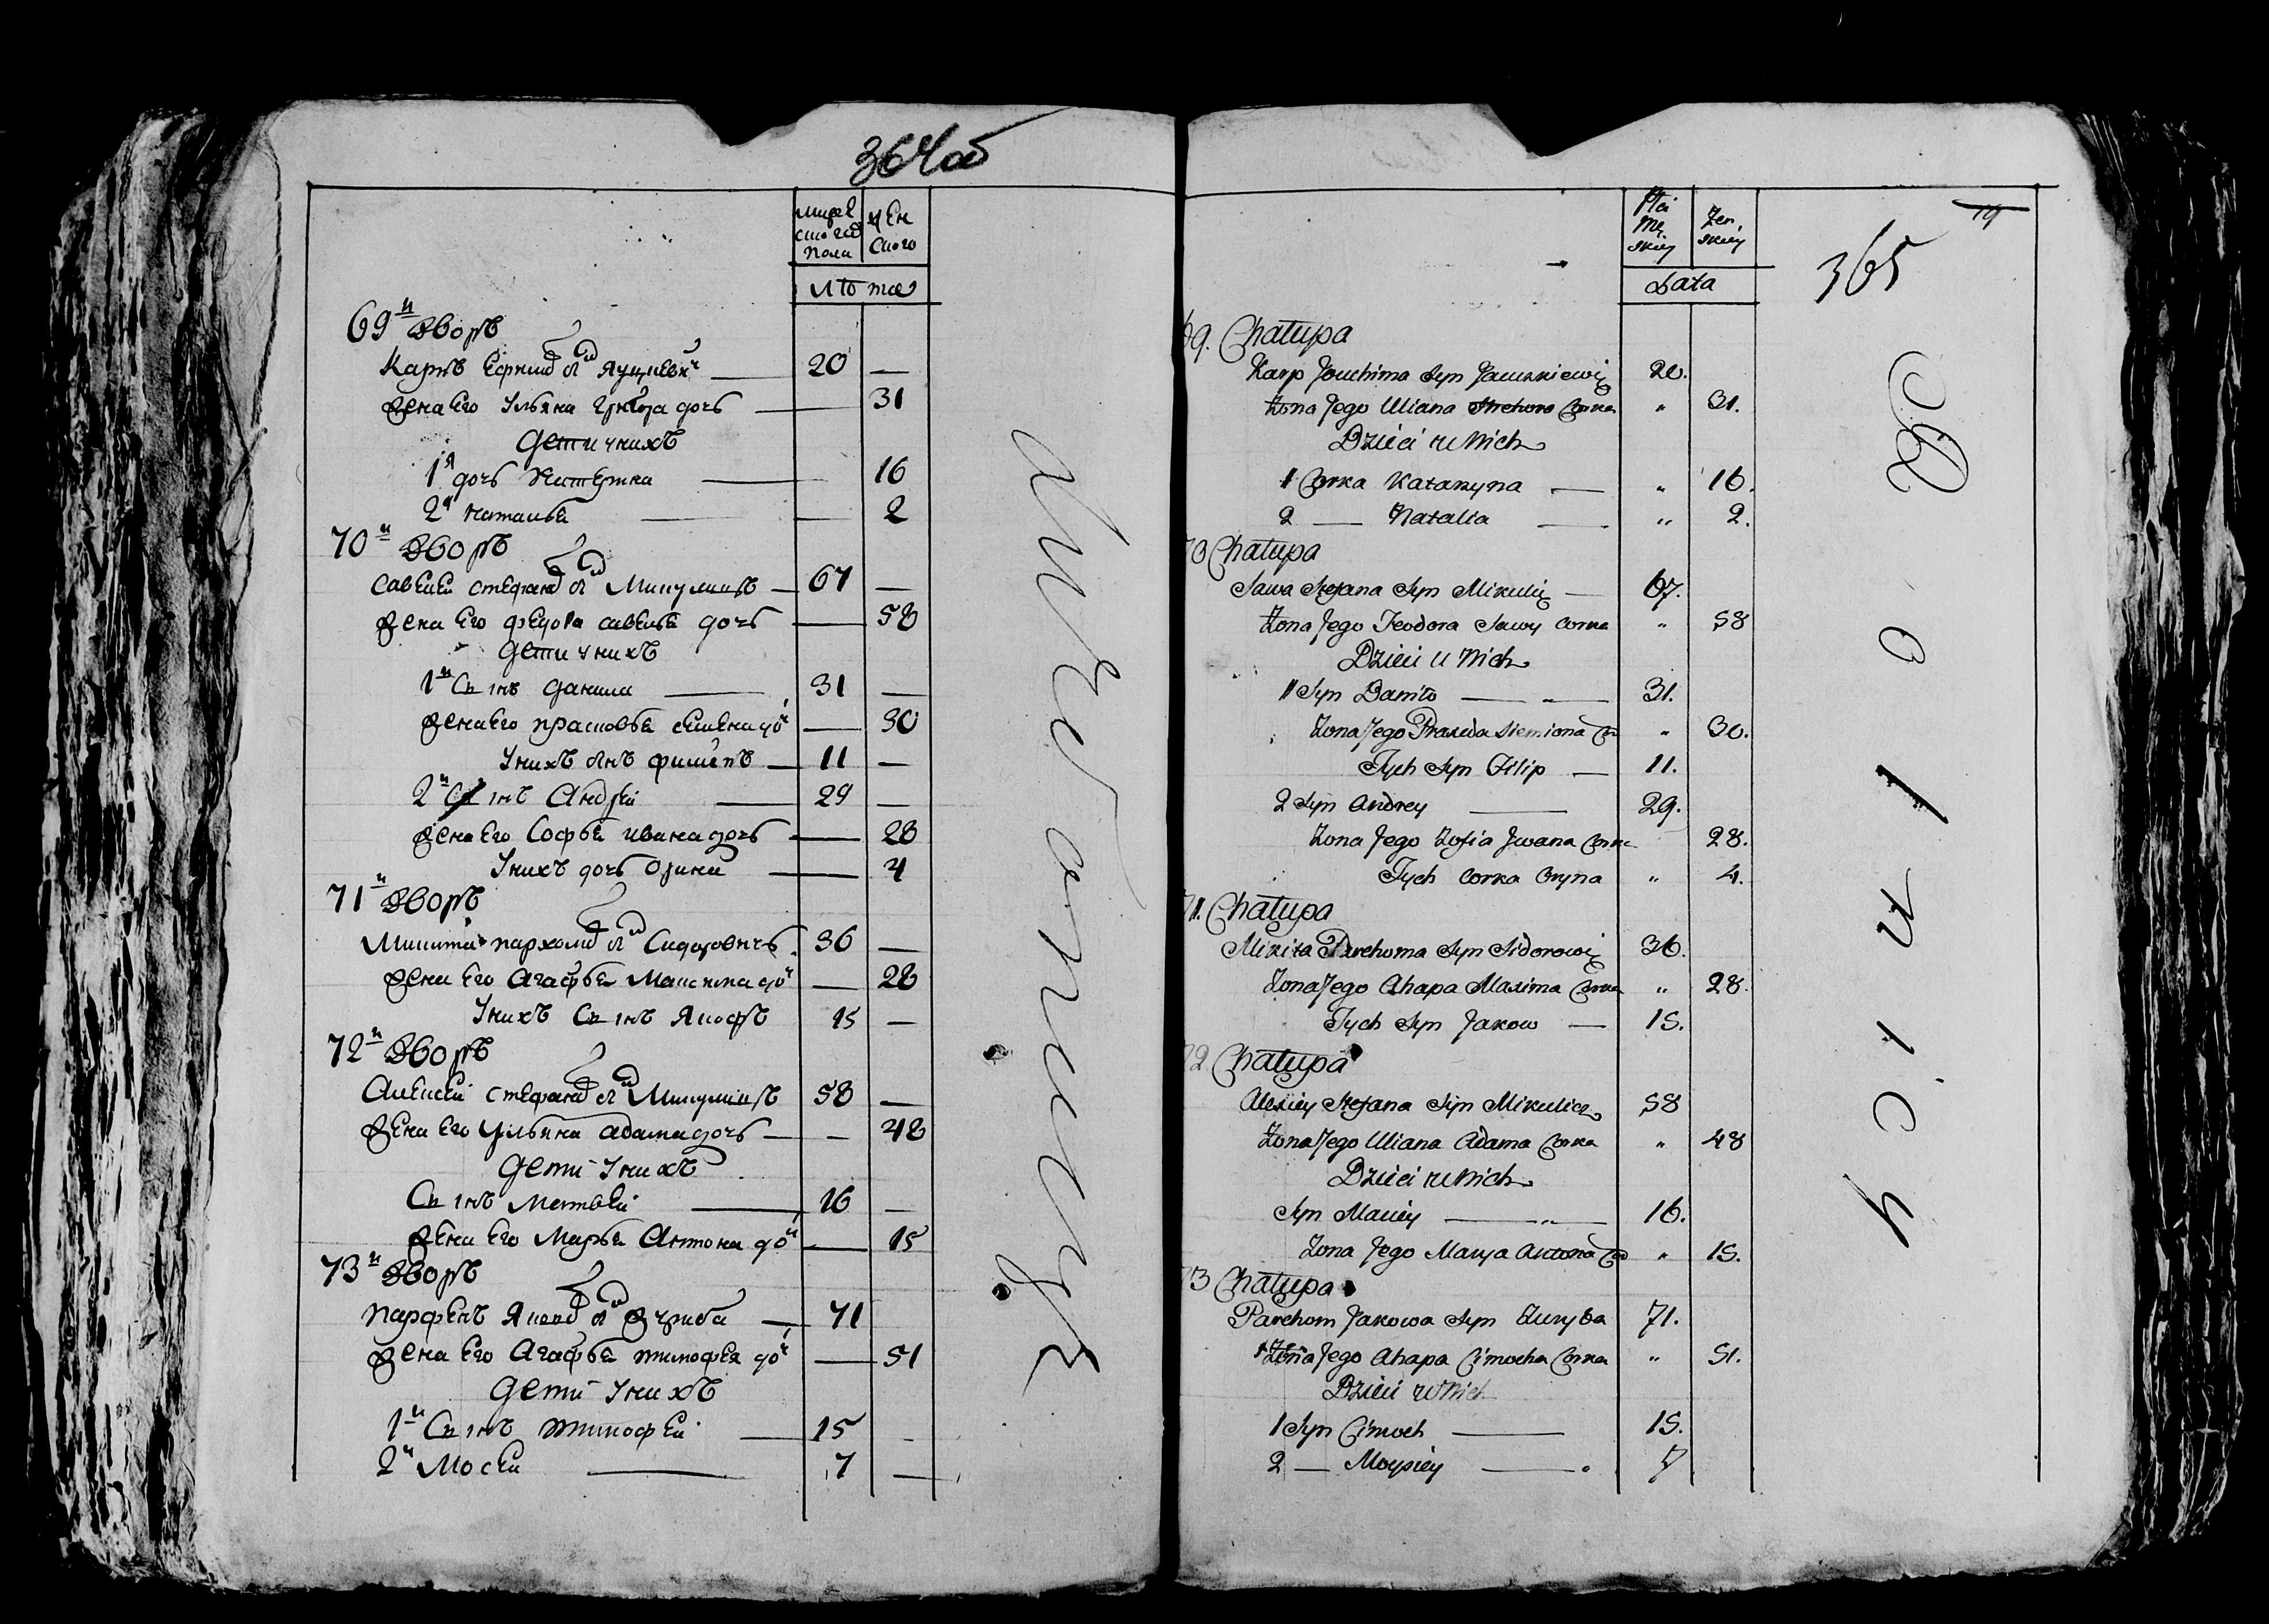 364об
мужескаго пола
женскаго
лѣта
69й Дворъ
Карпъ Ефима сынъ Яцукевич 20 —
Жена его Ульяна дочь 31
Дети у нихъ
1я дочь Катерина 16
2я Наталья 2
70й Дворъ
Савелей Стефана сынъ Микуличъ 67 —
Жена его Федора Савелья дочь 58
Дети у нихъ
1й Сынъ Данила 31 —
Жена его Прасковья Семена до 30
У нихъ сынъ Филипъ 11 —
2й Сынъ Андрей 29 —
Жена его Софья Ивана дочь 28
У нихъ дочь Орина 4
71й Дворъ
Микита Пархома сынъ Сидоровичъ 36 —
Жена его Агафья Максима до 28
У нихъ Сынъ Якофъ 15 —
72й Дворъ
Алексей Стефана сынъ Микуличъ 58 —
Жена его Ульяна Адама дочь 48
Дети у нихъ
Сынъ Матвей 16 —
Жена его Марья Антона до 15
73й Дворъ
Парфенъ Якова сынъ Журиба 71
Жена его Агафья Тимофея до 51
Дети у нихъ
1й Сынъ Тимофей 15 —
2й Мосей 7 —
Płci Męskiey
Żenskiey
Łata
365
69. Chałupa
Karp Jouchima Syn Jacuszkiewicz 20.
Żona Jego Uliana Corka " 31.
Dzieci u Nich
1 Corka Katarzyna — " 16.
2 — Natalia — " 2.
70 Chałupa
Sawa Stefana Syn Mikulicz — 67.
Żona Jego Teodora Sawy Corka " 58
Dzieci u Nich
1 Syn Daniło — 31.
Żona Jego Praxeda Siemiona Cor " 30.
Tych Syn Filip — 11.
2 Syn Andrey — 29.
Żona Jego Zofia Jwana Corka 28.
Tych Corka Oryna " 4.
71. Chałupa
Mikita Parchoma Syn Sidorowicz 36.
Żona Jego Ahapa Maxima Corka " 28.
Tych Syn Jakow — 15.
72 Chałupa
Alexiey Stefana Syn Mikulicz 58
Żona Jego Uliana Adama Corka " 48
Dzieci u Nich
Syn Maciey — " — 16.
Żona Jego Marya Antona Cor " 15.
73 Chałupa
Parchom Jakowa Syn Żuryba 71.
Żona Jego Ahapa Cimocha Corka " 51.
Dzieci u Nich
1 Syn Cimoch — 15.
2 — Moysiey — 7